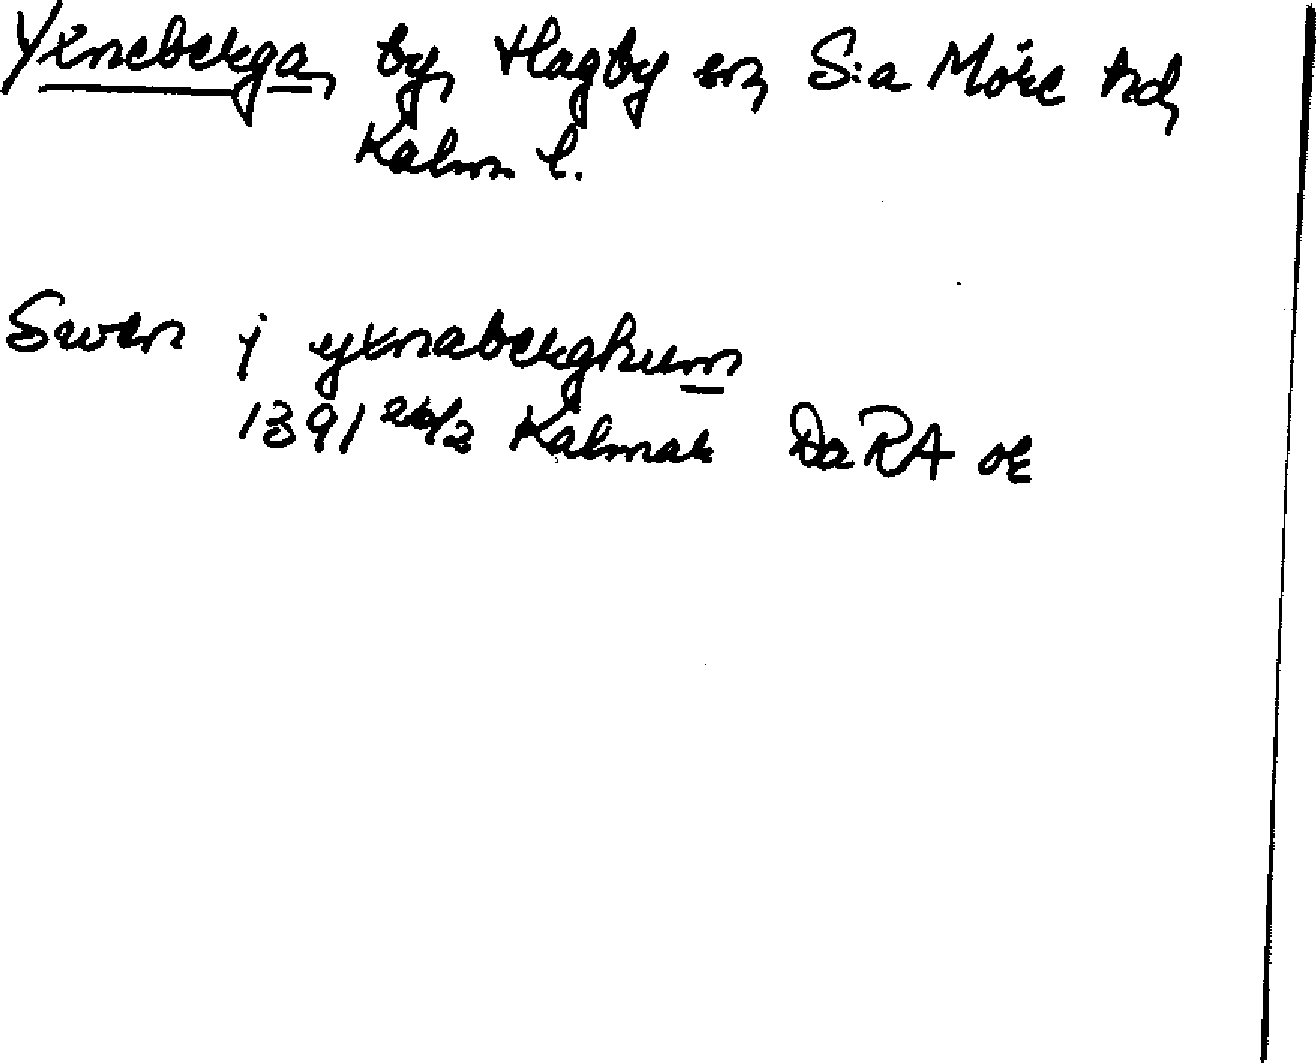 Yxneberga, by, Hagby sn, S:a Möre hd,
Kalm l.
Swen j yxnaberghum
1391 26/2 Kalmar Da RA or